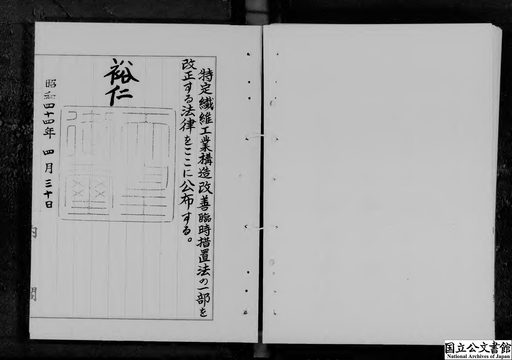 特定繊維工業構造改善臨時措置法の一部を
改正する法律をここに公布する。
裕仁
昭和四十四年四月三十日
内閣
国立公文書館
National Archives of Japan